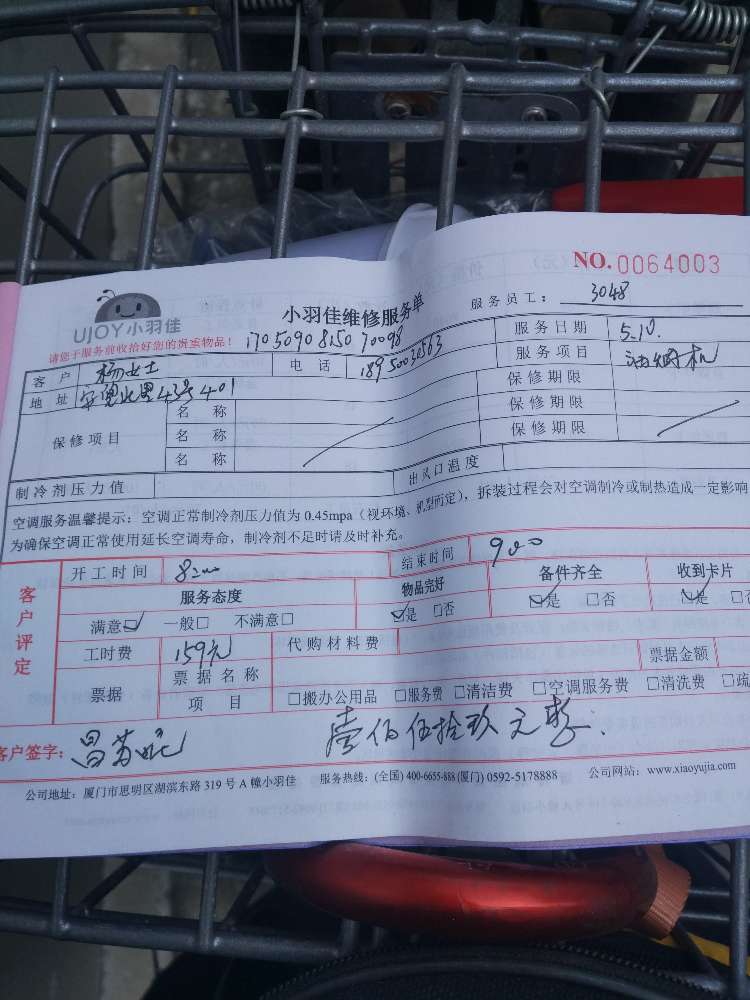 NO.0064003
UJOY小羽佳
小羽佳维修服务单
服务员工： 3048
请您于服务前收拾好您的贵重物品！ 1705090815070098
客 户 杨女士 电 话 18950032563 服务日期 5.10.
地 址 43号401 服务项目 油烟机
保修项目 名 称 保修期限
名 称 保修期限
名 称 保修期限
制冷剂压力值 出风口温度
空调服务温馨提示：空调正常制冷剂压力值为 0.45mpa（视环境、机型而定），拆装过程会对空调制冷或制热造成一定影响
为确保空调正常使用延长空调寿命，制冷剂不足时请及时补充。
客户评定 开工时间 8:00 结束时间 9:00
服务态度 物品完好 备件齐全 收到卡片
满意☑ 一般□ 不满意□ ☑是 □否 ☑是 □否 ☑是 □否
工时费 159元 代购材料费
票据 票据名称 票据金额
项 目 □搬办公用品 □服务费 □清洁费 □空调服务费 □清洗费 □疏
客户签字： 壹佰伍拾玖元整.
公司地址：厦门市思明区湖滨东路 319 号 A 幢小羽佳 服务热线：(全国) 400-6655-888 (厦门) 0592-5178888 公司网站：www.xiaoyujia.com